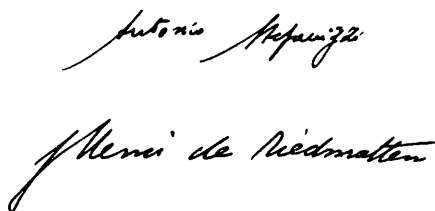 Antonio Stefanizzi
Henri de Riedmatten